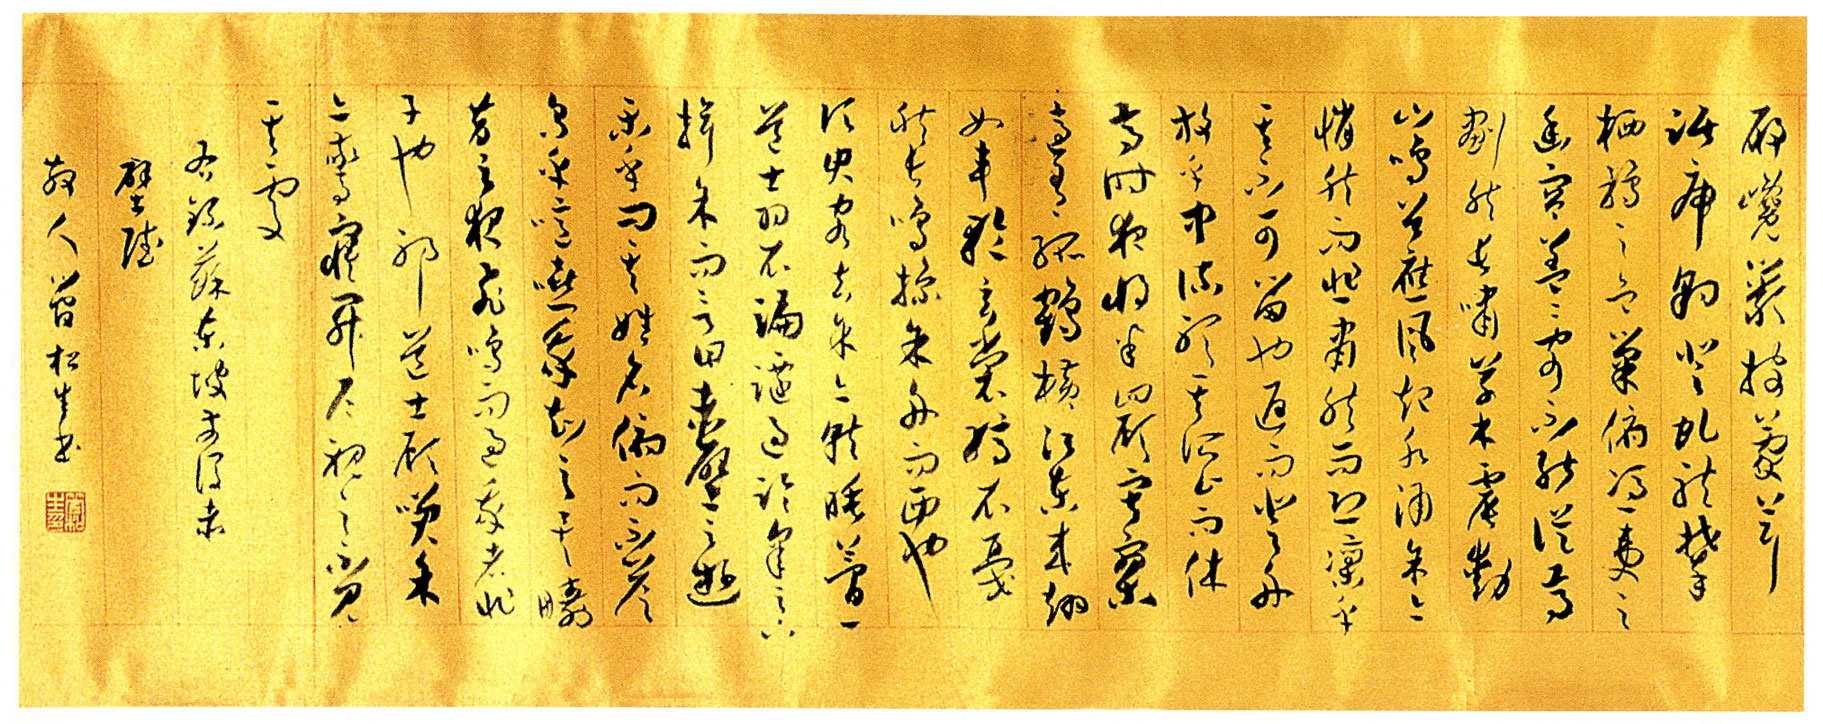 履巉巖披蒙茸
踞虎豹登虬龍攀
栖鶻之危巢俯馮夷之
幽宮蓋二客不能從焉
劃然長嘯草木震動
山鳴谷應風起水涌予亦
悄然而悲肅然而恐凜乎
其不可留也返而登舟
放乎中流聽其所止而休
焉時夜將半四顧寂寥
適有孤鶴橫江東來翅
如車輪玄裳縞衣戛
然長鳴掠予舟而西也
須臾客去予亦就睡夢一
道士羽衣翩躚過臨皋之下
揖予而言曰赤壁之遊
樂乎問其姓名俯而不答
嗚呼噫嘻我知之矣疇
昔之夜飛鳴而過我者非
子也邪道士顧笑予
亦驚寤開戶視之不見
其處
右錄蘇東坡前後赤
壁賦
散人曾松生書